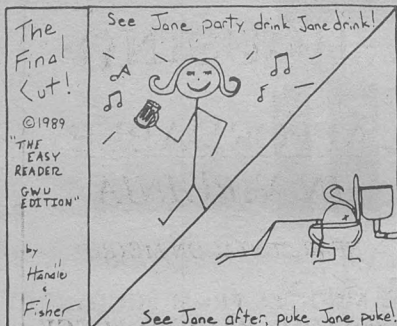 The
Final
Cut!
©1989
"THE
EASY
READER
GWU
EDITION"
by
Handle
&
Fisher
See Jane party, drink Jane drink!
See Jane after, puke Jane puke!